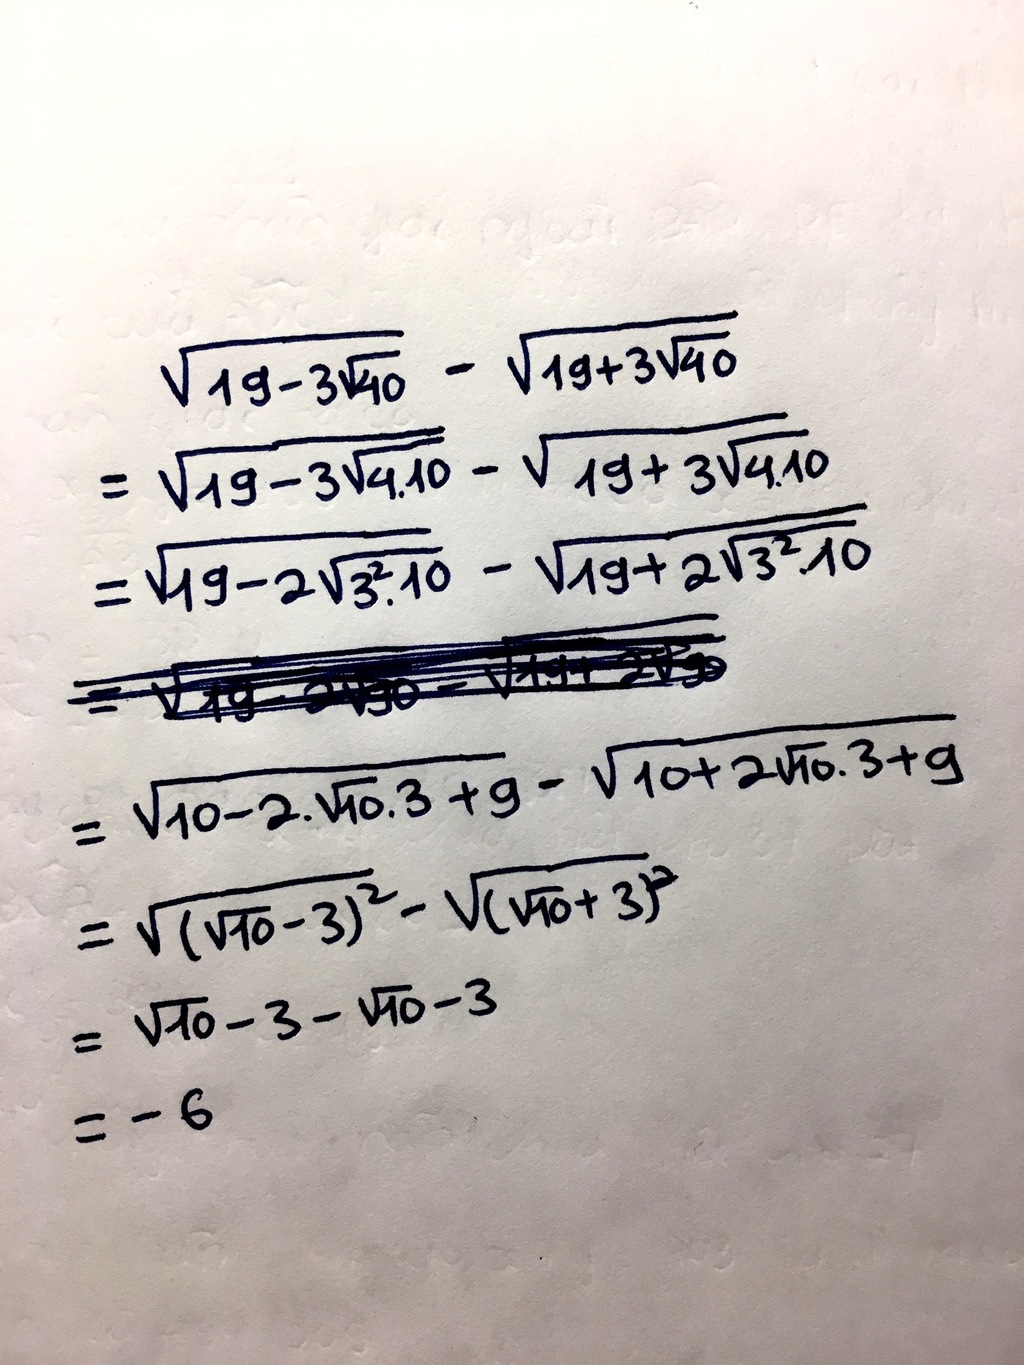 √(19-3√40) - √(19+3√40)
= √(19-3√4.10) - √(19+3√4.10)
= √(19-2√3².10) - √(19+2√3².10)
= √(19-2√90) - √(19+2√90)
= √(10-2.√10.3+9) - √(10+2√10.3+9)
= √(√10-3)² - √(√10+3)²
= √10-3-√10-3
= -6